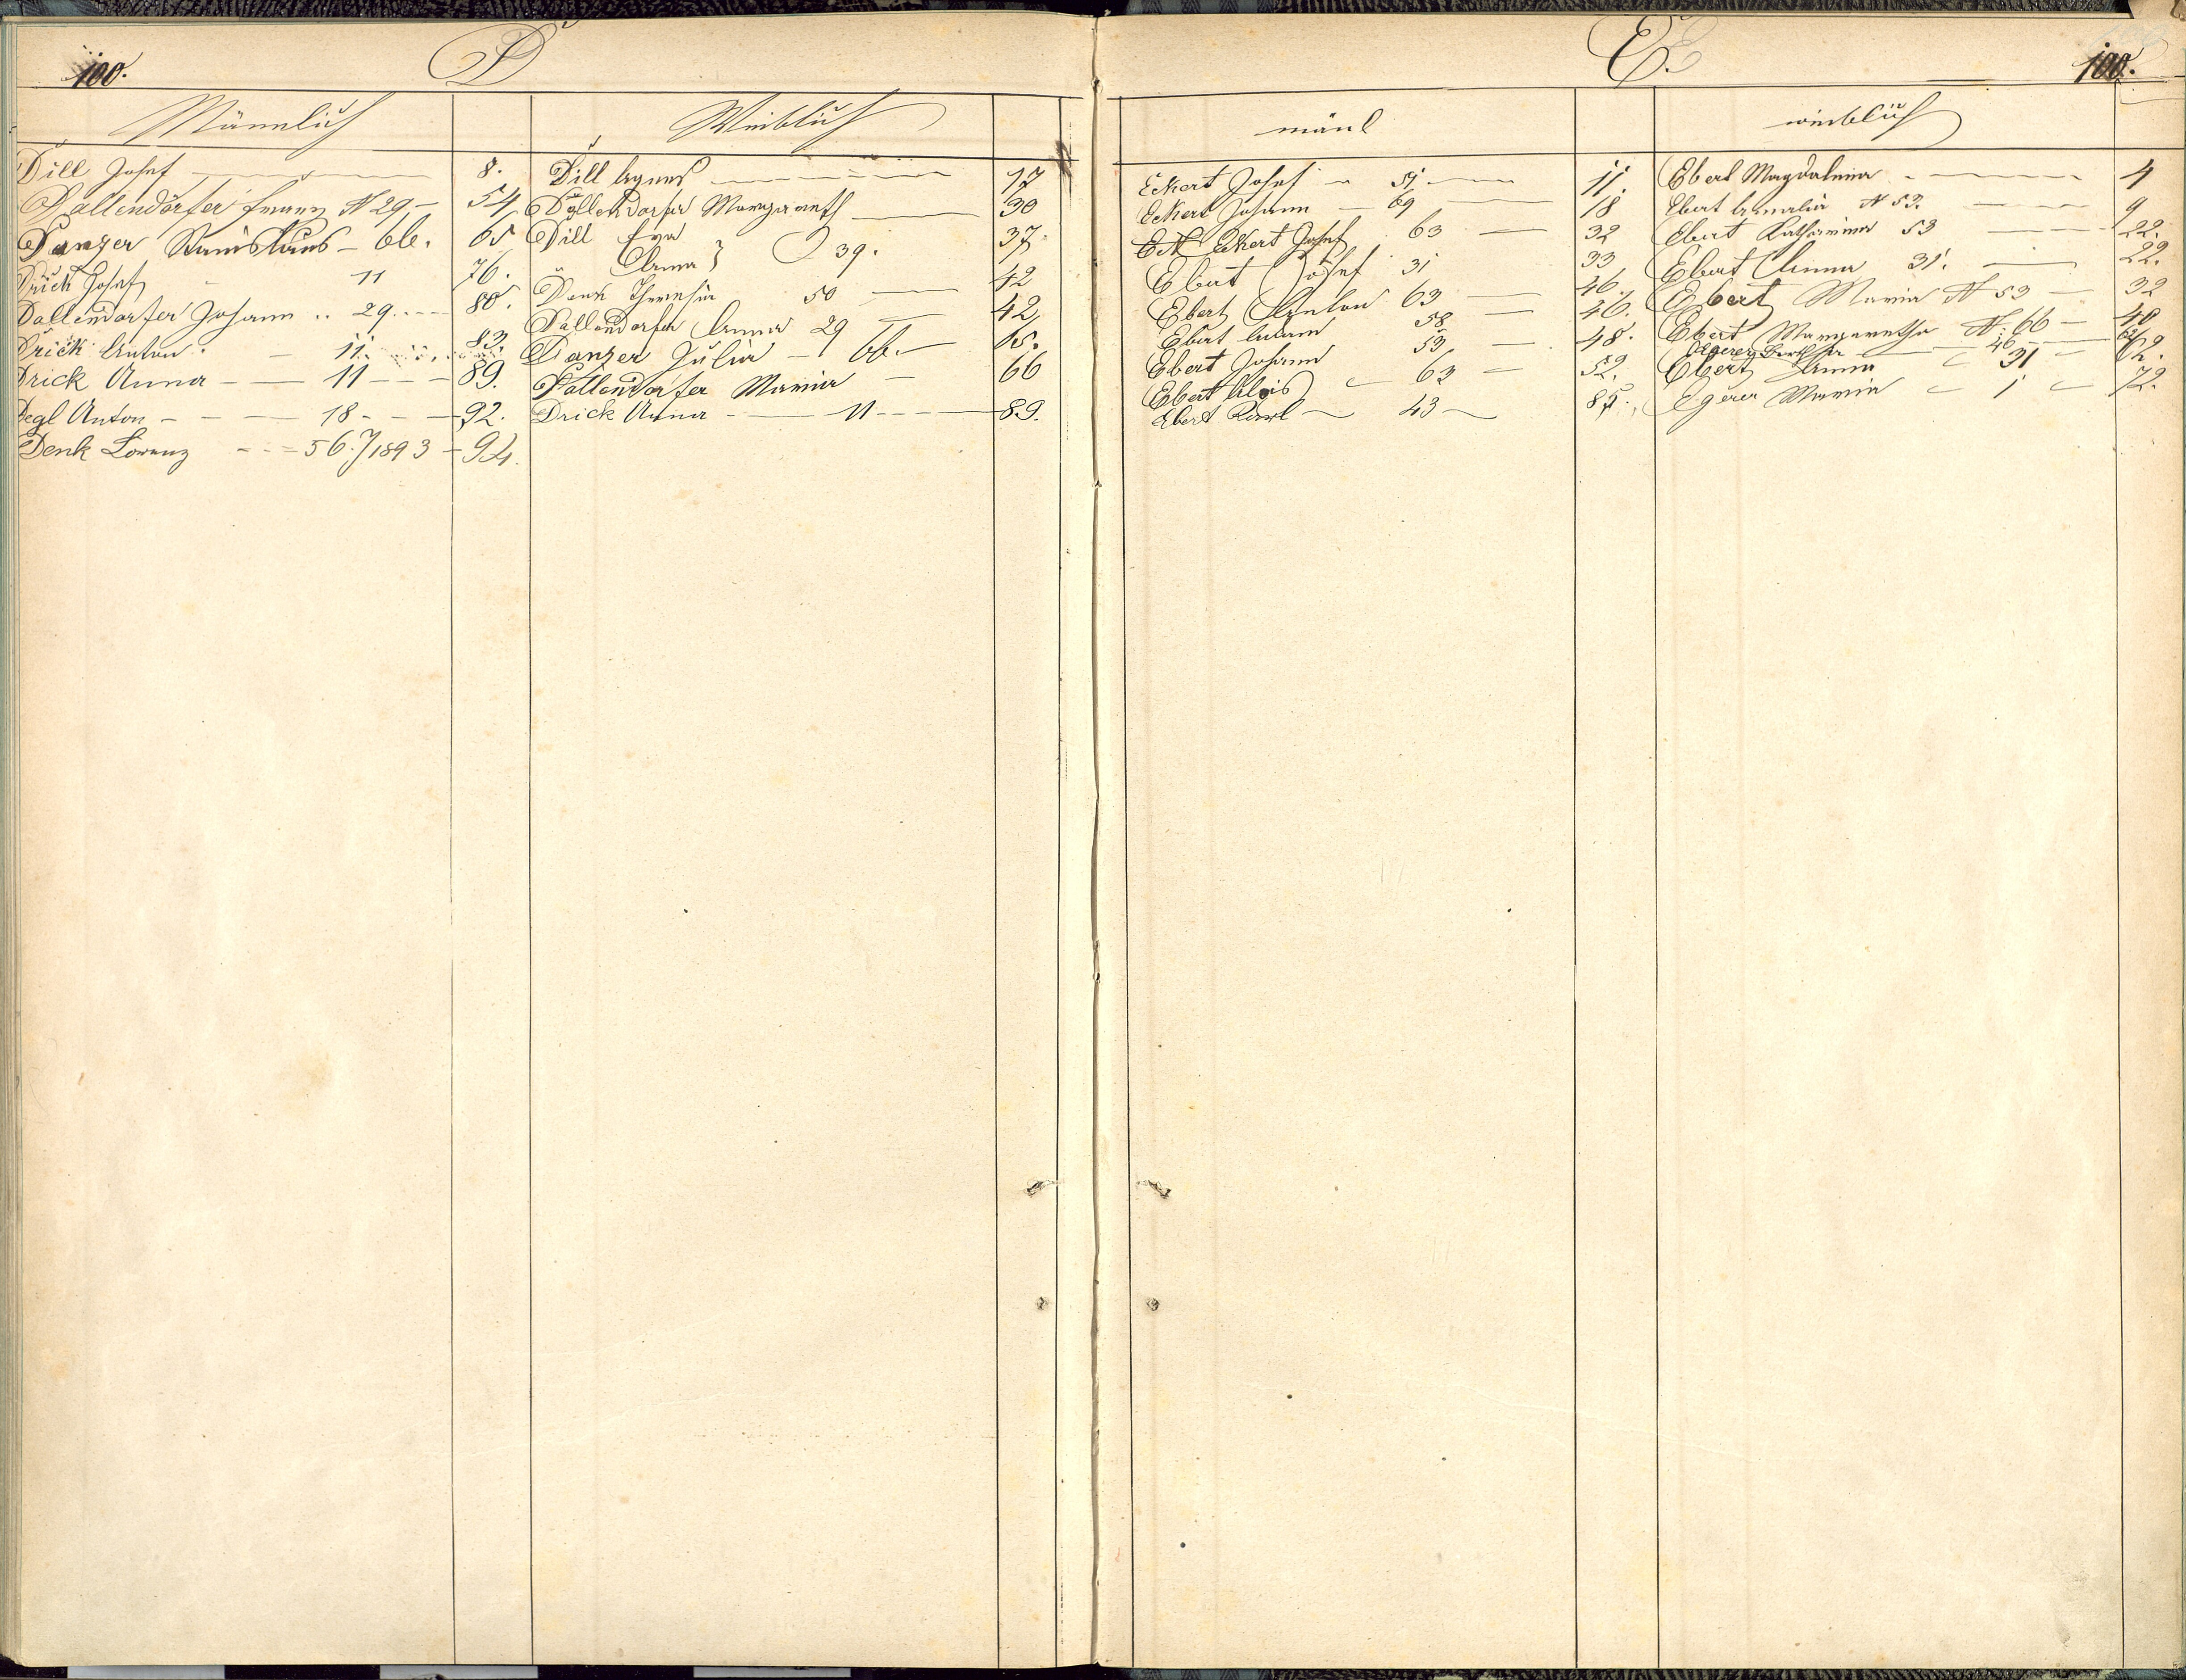 100.
D
Männlich
Weiblich
Dill Josef 8.
Dallendörfer Franz N 29 - 54
Danzer Stanislaus - 66. 65
Drick Josef 11 76.
Dallendorfer Johann .. 29. 80.
Drick Anton. - 11. 83.
Drick Anna - 11 - 89.
Degl Anton - 18 - 92.
Denk Lorenz - 56./1893 - 94.
Dill Agnes 17
Döllendorfer Margareth 30
Dill Eva 37.
Anna } 39.
Denk Theresia 50 42
Dallendorfer Anna 29 42
Danzer Julia - 66. 65.
Dallendorfer Maria - 66
Drick Anna - 11 - 89.
E.
100.
mänl
weiblich
Eckert Josef - 51. 11.
Eckert Johann - 69 18
Eckert Josef 63 32
Ebert Josef 31 33
Ebert Anton 63 46.
Ebert Adam 58 46.
Ebert Johann 53 48.
Ebert Alois 63 52.
Ebert Karl 43 85.
Ebert Magdalena 4
Ebert Amalia N 53. 9
Ebert Katharina 53 22.
Ebert Anna 31. 22.
Ebert Maria N 53 32
Ebert Margaretha N. 66 - 48
Egerer 46
Ebert Anna 31 62.
Egerer Maria 1 72.